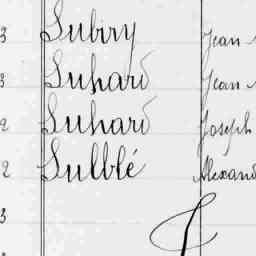 3 Lubiry Jean
3 Luhard Jean
2 Luhard Joseph
2 Lulblé Alexand
3